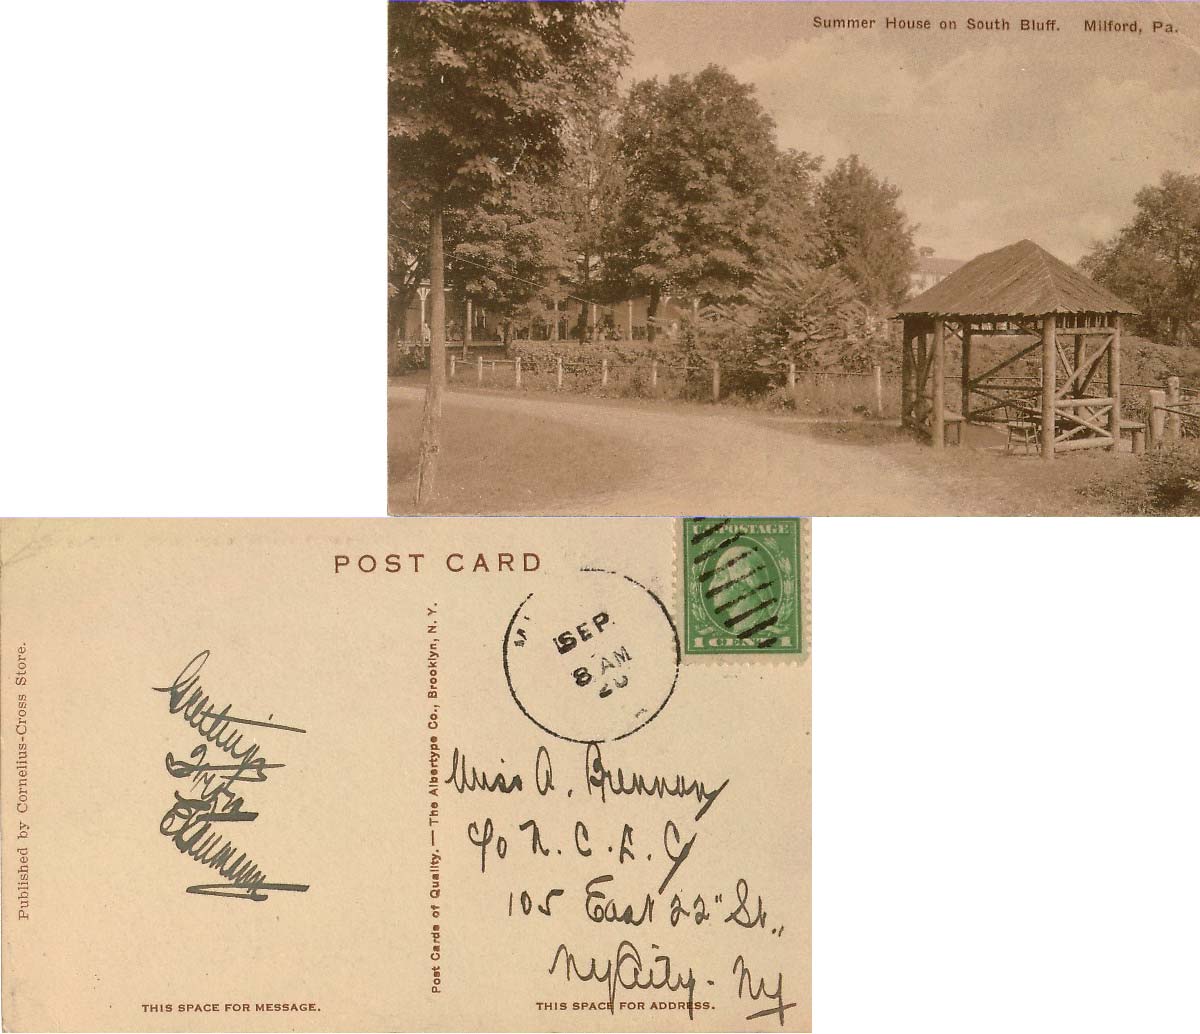 Summer House on South Bluff. Milford, Pa.
POST CARD
U.S. POSTAGE
1 CENT 1
SEP.
8 AM
20
Published by Cornelius-Cross Store.
Greetings
from
Post Cards of Quality.—The Albertype Co., Brooklyn, N. Y.
Miss A. Brennan
c/o N. C. L. C
105 East 22" St.,
NY City - NY
THIS SPACE FOR MESSAGE.
THIS SPACE FOR ADDRESS.